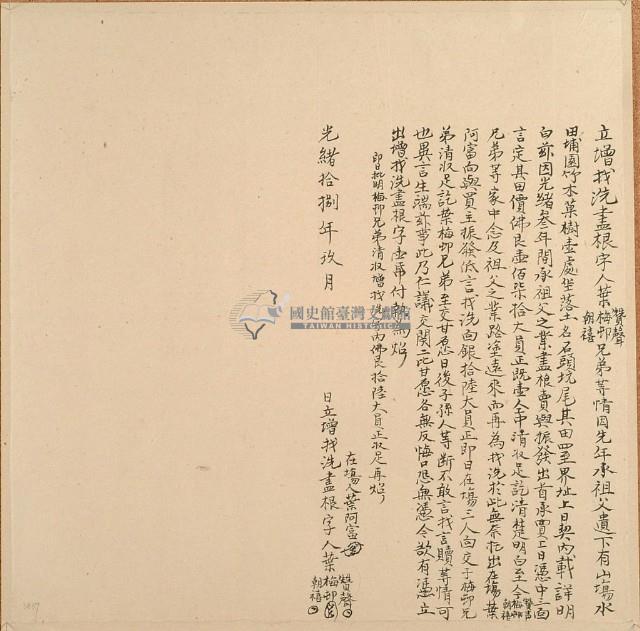 立增找洗盡根字人葉贊聲梅邨朝禧兄弟等情因先年承祖父遺下有山場水
田埔園竹木菓樹壹處坐落土名石頭坑尾其田四至界址上日契內載詳明
白茲因光緒叁年間承祖父之業盡根賣與振發出首承買上日憑中三面
言定其田價佛艮壹佰柒拾大員正既壹仝中清收足訖清楚明白至今贊聲梅邨朝禧
兄弟等家中念及祖父之業路塗遠來而再為找洗於此無奈托出在塲葉
阿富向與買主振發低言找洗向銀拾陸大員正即日在塲三人面交于梅邨兄
弟清收足訖葉梅邨兄弟至交甘愿日後子孫人等斷不敢言找言贖等情可
也異言生端茲事此乃仁議交關二比甘愿各無反悔口恐無憑今欲有憑立
出增找洗盡根字壹帋付執為炤
即日批明梅邨兄弟清收增找洗內佛艮拾陸大員正收足再炤
在塲人葉阿富
光緒拾捌年玖月 日立增找洗盡根字人葉贊聲梅邨朝禧
國史館臺灣文獻館
TAIWAN HISTORICA